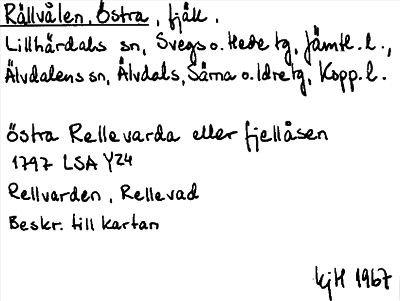 Rällvålen, Östra, fjäll.
Lillhärdals sn, Svegs o. Hede tg, Jämtl. l.,
Älvdalens sn, Älvdals, Särna o. Idre tg, Kopp. l.
Östra Rellevarda eller fjellåsen
1797 LSA Y24
Rellvarden, Rellevad
Beskr. till kartan
KjH 1967